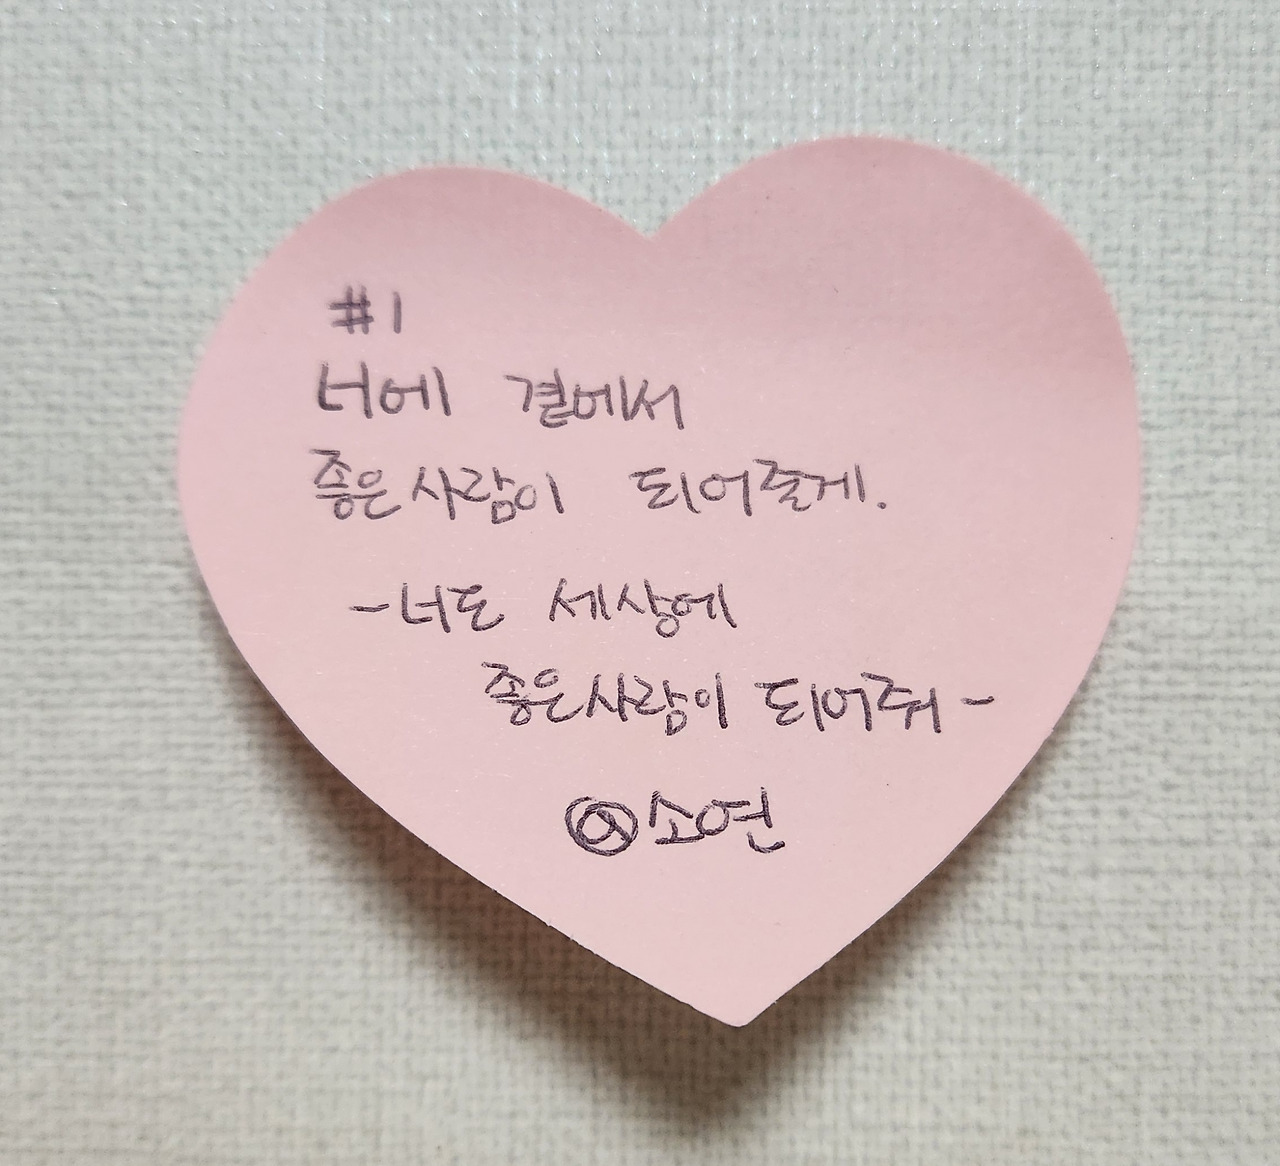 #1
너에 곁에서
좋은사람이 되어줄게.
-너도 세상에
좋은사람이 되어줘-
소연